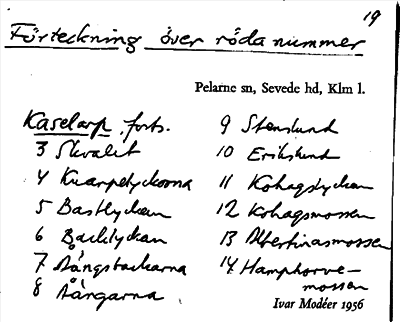 19
Förteckning över röda nummer
Pelarne sn, Sevede hd, Klm l.
Kaselarp, forts.
3 Skvalet
4 Kvarpelyckorna
5 Bastlyckan
6 Backlyckan
7 Långbackarna
8 Långarna
9 Stenslund
10 Erikslund
11 Kohagslyckan
12 Kohagsmossen
13 Albertinasmossen
14 Hamphorve-
mossen
Ivar Modéer 1956